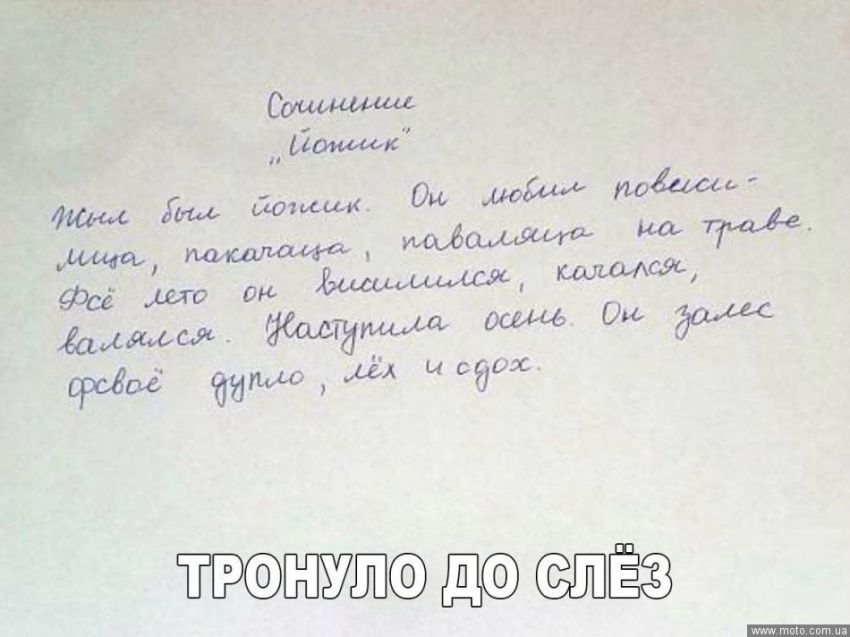 Сочинение
„Йожик"
Жыл был йожик. Он любил повиси-
лица, пакачаца, паваляца на траве.
Фсё лето он висилился, качался,
валялся. Наступила осень. Он залес
фсваё дупло, лёх и одох.
ТРОНУЛО ДО СЛЁЗ
www.moto.com.ua